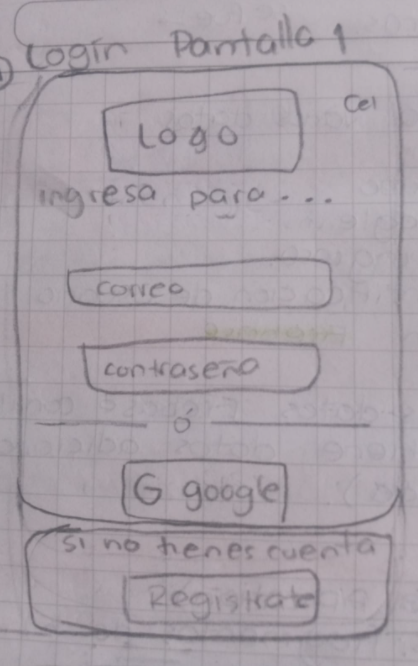 Login Pantalla 1
Cel
Logo
ingresa para...
correo
contraseña
ó
G google
si no tienes cuenta
Registrate